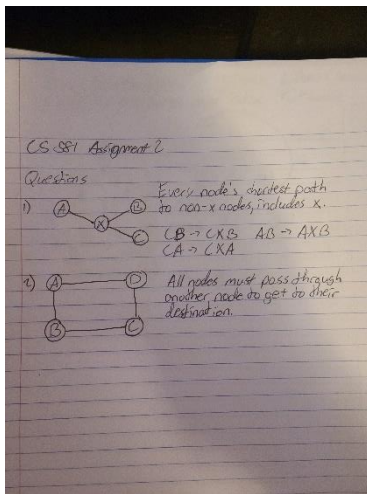 CS 581 Assignment 2
Questions
1) A X B C
Every node's shortest path
to non-x nodes, includes x.
CB → CXB AB → AXB
CA → CXA
2) A D B C
All nodes must pass through
another node to get to their
destination.